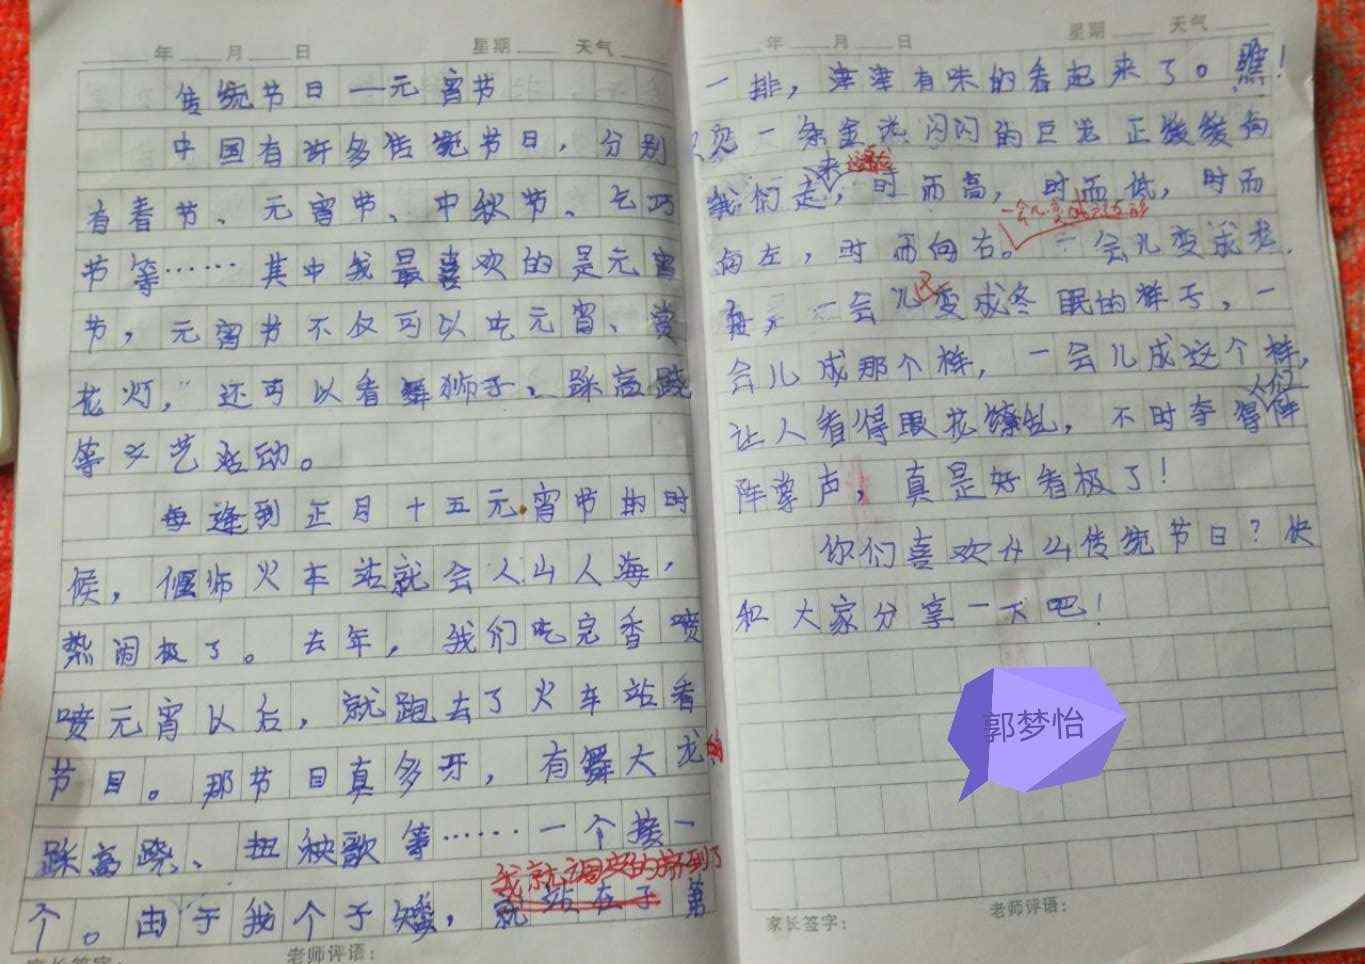 年 月 日 星期 天气
传统节日—元宵节
中国有许多传统节日，分别
有春节、元宵节、中秋节、乞巧
节等……其中我最喜欢的是元宵
节，元宵节不仅可以吃元宵、赏
花灯，还可以看舞狮子、踩高跷
等文艺活动。
每逢到正月十五元宵节的时
候，偃师火车站就会人山人海，
热闹极了。去年，我们吃完香喷
喷元宵以后，就跑去了火车站看
节目。那节目真多呀，有舞大龙
踩高跷、扭秧歌等……一个接一
我就 的 到了
个。由于我个子矮，就站在了第
家长签字： 老师评语：
年 月 日 星期 天气
一排，津津有味的看起来了。瞧！
只见一条金光闪闪的巨龙正缓缓向
来
我们走，时而高，时而低，时而
一会儿变成
向左，时而向右。一会儿变成龙
一会儿变成冬眠的样子，一
会儿成那个样，一会儿成这个样，
人们
让人看得眼花缭乱，不时夺得阵
阵掌声，真是好看极了！
你们喜欢什么传统节日？快
和大家分享一下吧！
郭梦怡
家长签字： 老师评语：